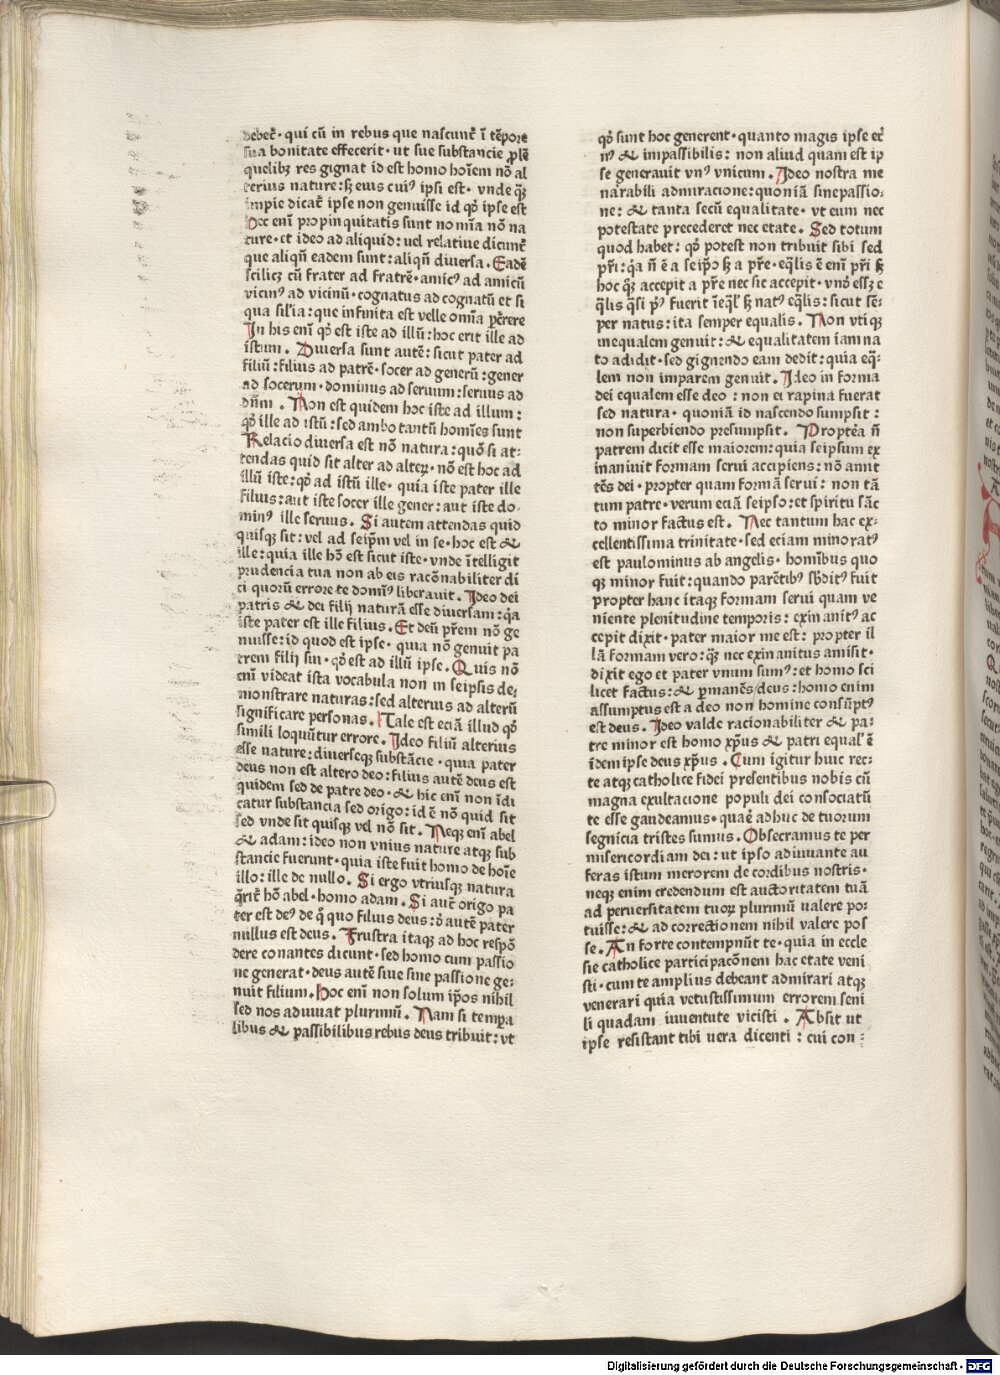 debet᷑ · qui cū in rebus que nascunt᷑ ī tēpore
sua bonitate effecerit · ut sue substancie ꝓlē
quelibꝫ res gignat id est homo hoīem nō al
terius nature : sꝫ eius cuiꝰ ipsi est · vnde qͣꝫ
impie dicat᷑ ipse non genuisse id qđ ipse est
Hec enī propinquitatis sunt nomīa nō na
ture · et ideo ad aliquid : uel relatiue dicunt᷑
que aliqn̄ eadem sunt : aliqn̄ diuersa . Eadē
scilicꝫ cū frater ad fratrē · amicꝰ ad amicū
vicinꝰ ad vicinū · cognatus ad cognatū et si
qua sił'ia : que infinita est velle omīa ꝑcͥrere
In his enī qđ est iste ad illū : hoc erit ille ad
istum . Diuersa sunt autē : sicut pater ad
filiū : filius ad patrē · socer ad generū : gener
ad socerum · dominus ad seruum : seruus ad
dn̄m . Non est quidem hoc iste ad illum :
qđ ille ad istū : sed ambo tantū homīes sunt
Relacio diuersa est nō natura : quō si at⸗
tendas quid sit alter ad alterꝝ · nō est hoc ad
illū iste : qđ ad istū ille · quia iste pater ille
filius : aut iste socer ille gener : aut iste do⸗
minꝰ ille seruus . Si autem attendas quid
quisqꝫ sit : vel ad seip̄m vel in se · hoc est &
ille : quia ille hō est sicut iste · vnde ītelligit
prudencia tua non ab eis racōnabiliter di
ci quorū errore te domīꝰ liberauit . Ideo dei
patris & dei filij naturā esse diuersam : qͥa
iste pater est ille filius . Et deū pr̄em nō ge
nuisse : id quod est ipse · quia nō genuit pa
trem filij sui · qđ est ad illū ipse . Quis nō
enī videat ista vocabula non in seipsis de⸗
monstrare naturas : sed alterius ad alterū
significare personas . Tale est eciā illud qđ
simili loquūtur errore . Ideo filiū alterius
esse nature : diuerseqꝫ substācie · quia pater
deus non est altero deo : filius autē deus est
quidem sed de patre deo · & hic enī non īdi
catur substancia sed origo : id ē nō quid sit
sed vnde sit quisqꝫ vel nō sit . Neqꝫ enī abel
& adam : ideo non vnius nature atqꝫ sub
stancie fuerunt · quia iste fuit homo de hoīe
illo : ille de nullo . Si ergo vtriusqꝫ natura
q̄rit᷑ hō abel · homo adam . Si aut̄ origo pa
ter est deꝰ de q̊ quo filius deus : ꝺ autē pater
nullus est deus . Frustra itaqꝫ ad hoc respō
dere conantes dicunt · sed homo cum passio
ne generat · deus autē siue sine passione ge⸗
nuit filium . Hoc enī non solum ip̄os nihil
sed nos adiuuat plurimū . Nam si tempora
libus & passibilibus rebus deus tribuit : vt
qđ sunt hoc generent · quanto magis ipse et᷑
nꝰ & impassibilis : non aliud quam est ip
se generauit vnꝰ vnicum . Ideo nostra me
narabili admiracione : quoniā sine passio⸗
ne : & tanta secū equalitate · vt eum nec
potestate precederet nec etate . Sed totum
quod habet : qđ potest non tribuit sibi sed
pr̄i : qͥa n̄ ē a seip̄o sꝫ a pr̄e · eq̄lis ē enī pr̄i sꝫ
hoc qͣꝫ accepit a pr̄e nec sic accepit · vnđ essꝫ e
q̄lis qͥsi pͥꝰ fuerit īeq̄l' sꝫ natꝰ eq̄lis : sicut sē⸗
per natus : ita semper equalis . Non vtiqꝫ
inequalem genuit : & equalitatem iam na
to adidit · sed gignendo eam dedit : quia eq̄⸗
lem non imparem genuit . Ideo in forma
dei equalem esse deo : non ei rapina fuerat
sed natura · quoniā id nascendo sumpsit :
non superbiendo presumpsit . Proptēa n̄
patrem dicit esse maiorem : quia seipsum ex
inaniuit formam serui accipiens : nō amit
tēs dei · propter quam formā serui : non tā
tum patre · verum eciā seipso : et spiritu sāc
to minor factus est . Nec tantum hac ex⸗
cellentissima trinitate · sed eciam minoratꝰ
est paulominus ab angelis · homībus quo
qꝫ minor fuit : quando parētibꝰ sꝫditꝰ fuit
propter hanc itaqꝫ formam serui quam ve
niente plenitudine temporis : exinanitꝰ ac
cepit dixit · pater maior me est : propter il
lā formam vero : qͣꝫ nec exinanitus amisit ·
dixit ego et pater vnum sumꝰ : et homo sci
licet factus : & ꝑmanēs deus : homo enim
assumptus est a deo non homine consūptꝰ
est deus . Ideo valde racionabiliter & pa⸗
tre minor est homo xp̄us & patri equal' ē
īdem ipse deus xp̄us . Cum īgitur huic rec⸗
te atqꝫ catholice fidei presentibus nobis cū
magna exultacione populi dei consociatū
te esse gaudeamus · quaē adhuc de tuorum
segnicia tristes sumus . Obsecramus te per
misericordiam dei : ut ipso adiuuante au
feras istum merorem de cordibus nostris ·
neqꝫ enim credendum est auctoritatem tuā
ad peruersitatem tuoꝝ plurimū ualere po⸗
tuisse : & ad correctionem nihil valere pos
se . An forte contempnūt te · quia in eccle
sie catholice participacōnem hac etate veni
sti · cum te amplius debeant admirari atqꝫ
venerari quia vetustissimum errorem seni
li quadam iuuentute vicisti . Absit ut
ipse resistant tibi uera dicenti : cui con⸗
Digitalisierung gefördert durch die Deutsche Forschungsgemeinschaft - DFG